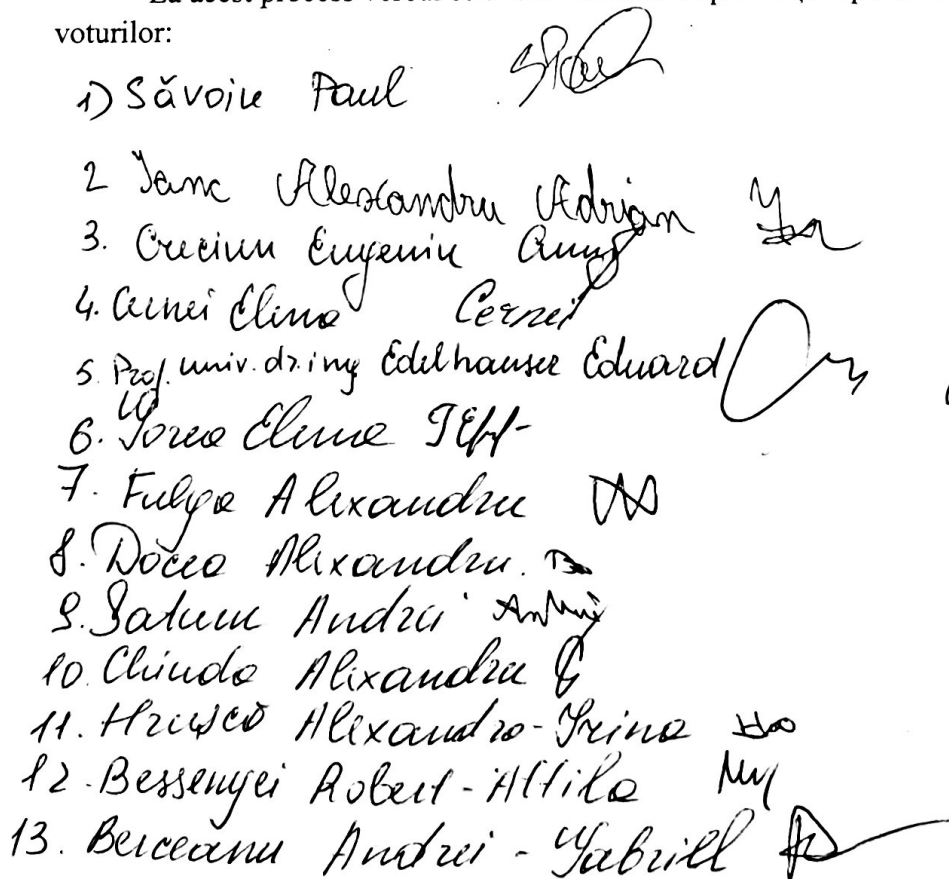 La acest proces verbal
voturilor:
1) Săvoiu Paul
2 Ianc Alexandru Adrian
3. Creciun Eugeniu
4. Cernei Elena Cernei
5. Prof. univ. dr. ing Edelhauser Eduard
6. Elena
7. Fulga Alexandru
8. Docea Alexandru.
9. Andrei
10. Chindo Alexandru
11. Hrușcă Alexandra-Irina
12. Bessenyei Robert-Attila
13. Berceanu Andrei-Gabriell